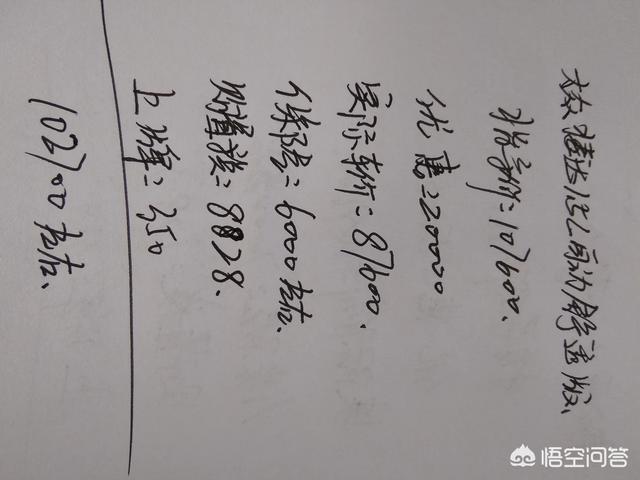 大众捷达1.5L自动舒适版、
指导价=107600、
优惠=20000
实际车价=87600、
保险=6000左右、
购置税=8828.
上牌=350
102700左右、
悟空问答